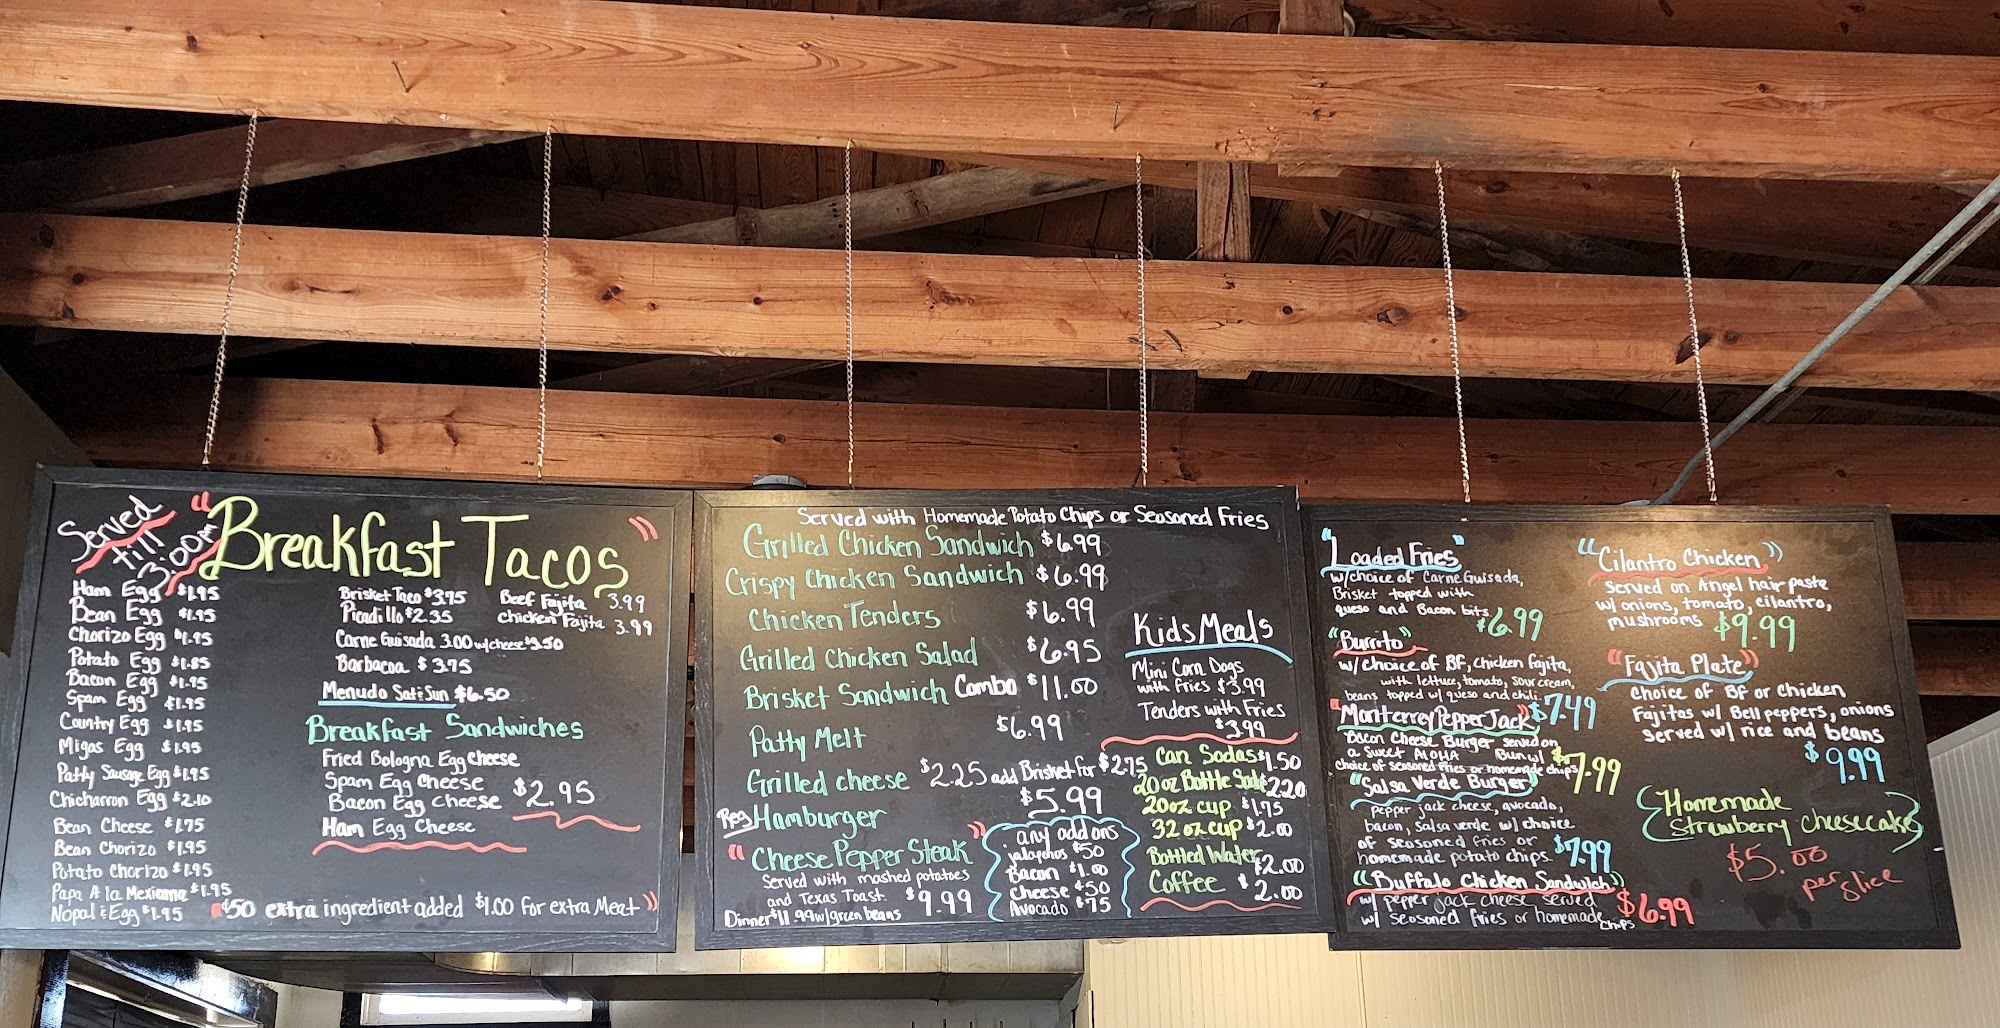 Served
till
3:00pm
"Breakfast Tacos"
Ham Egg $1.95
Bean Egg $1.95
Chorizo Egg $1.95
Potato Egg $1.85
Bacon Egg $1.95
Spam Egg $1.95
Country Egg $1.95
Migas Egg $1.95
Patty Sausage Egg $1.95
Chicharron Egg $2.10
Bean Cheese $1.75
Bean Chorizo $1.95
Potato Chorizo $1.95
Papa A la Mexicana $1.95
Nopal & Egg $1.95
Brisket Taco $3.75
Picadillo $2.35
Carne Guisada 3.00 w/cheese $3.50
Barbacoa $3.75
Menudo Sat & Sun $6.50
Beef Fajita 3.99
chicken Fajita 3.99
Breakfast Sandwiches
Fried Bologna Egg Cheese
Spam Egg Cheese
Bacon Egg Cheese $2.95
Ham Egg Cheese
"$50 extra ingredient added $1.00 for extra Meat"
Served with Homemade Potato Chips or Seasoned Fries
Grilled Chicken Sandwich $6.99
Crispy Chicken Sandwich $6.99
Chicken Tenders $6.99
Grilled Chicken Salad $6.95
Brisket Sandwich Combo $11.00
Patty Melt $6.99
Grilled cheese $2.25 add Brisket for $2.75
Reg Hamburger $5.99
"Cheese Pepper Steak"
Served with mashed potatoes
and Texas Toast $9.99
Dinner $11.99 w/green beans
any add ons
jalapeños $50
Bacon $1.00
Cheese $50
Avocado $75
Kids Meals
Mini Corn Dogs
with fries $3.99
Tenders with Fries
$3.99
Can Sodas $1.50
20oz Bottle Soda $2.20
20oz cup $1.75
32oz cup $2.00
Bottled Water $2.00
Coffee $2.00
"Loaded Fries"
w/choice of Carne Guisada,
Brisket topped with
queso and Bacon bits
$6.99
"Burrito"
w/choice of BF, chicken fajita,
with lettuce, tomato, sour cream,
beans topped w/ queso and chili
$7.49
"Monterrey Pepper Jack"
Bacon Cheese Burger served on
a Sweet Aloha Bun w/
choice of seasoned fries or homemade chips
$7.99
"Salsa Verde Burger"
pepper jack cheese, avocado,
bacon, salsa verde w/ choice
of seasoned fries or
homemade potato chips. $7.99
"Buffalo Chicken Sandwich"
w/ pepper jack cheese served
w/ seasoned fries or homemade
chips
$6.99
"Cilantro Chicken"
Served on Angel hair paste
w/ onions, tomato, cilantro,
mushrooms $9.99
"Fajita Plate"
Choice of BF or chicken
Fajitas w/ Bell peppers, onions
served w/ rice and beans
$9.99
Homemade
Strawberry cheesecake
$5.00
per slice